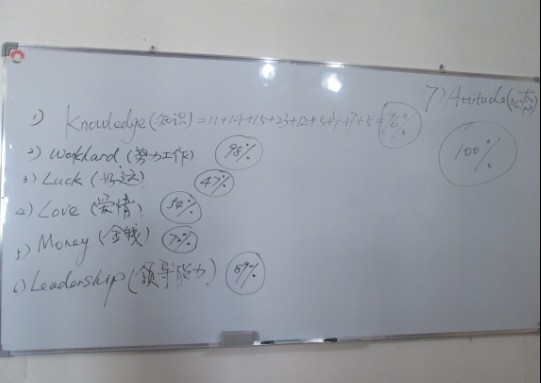 1) Knowledge (知识) = 11+14+15+23+12+5+4+7+5 = 96%
2) workhard (努力工作) 98%
3) Luck (好运) 47%
4) Love (爱情) 54%
5) Money (金钱) 72%
6) Leadership (领导能力) 89%
7) Attitude (心态) 100%